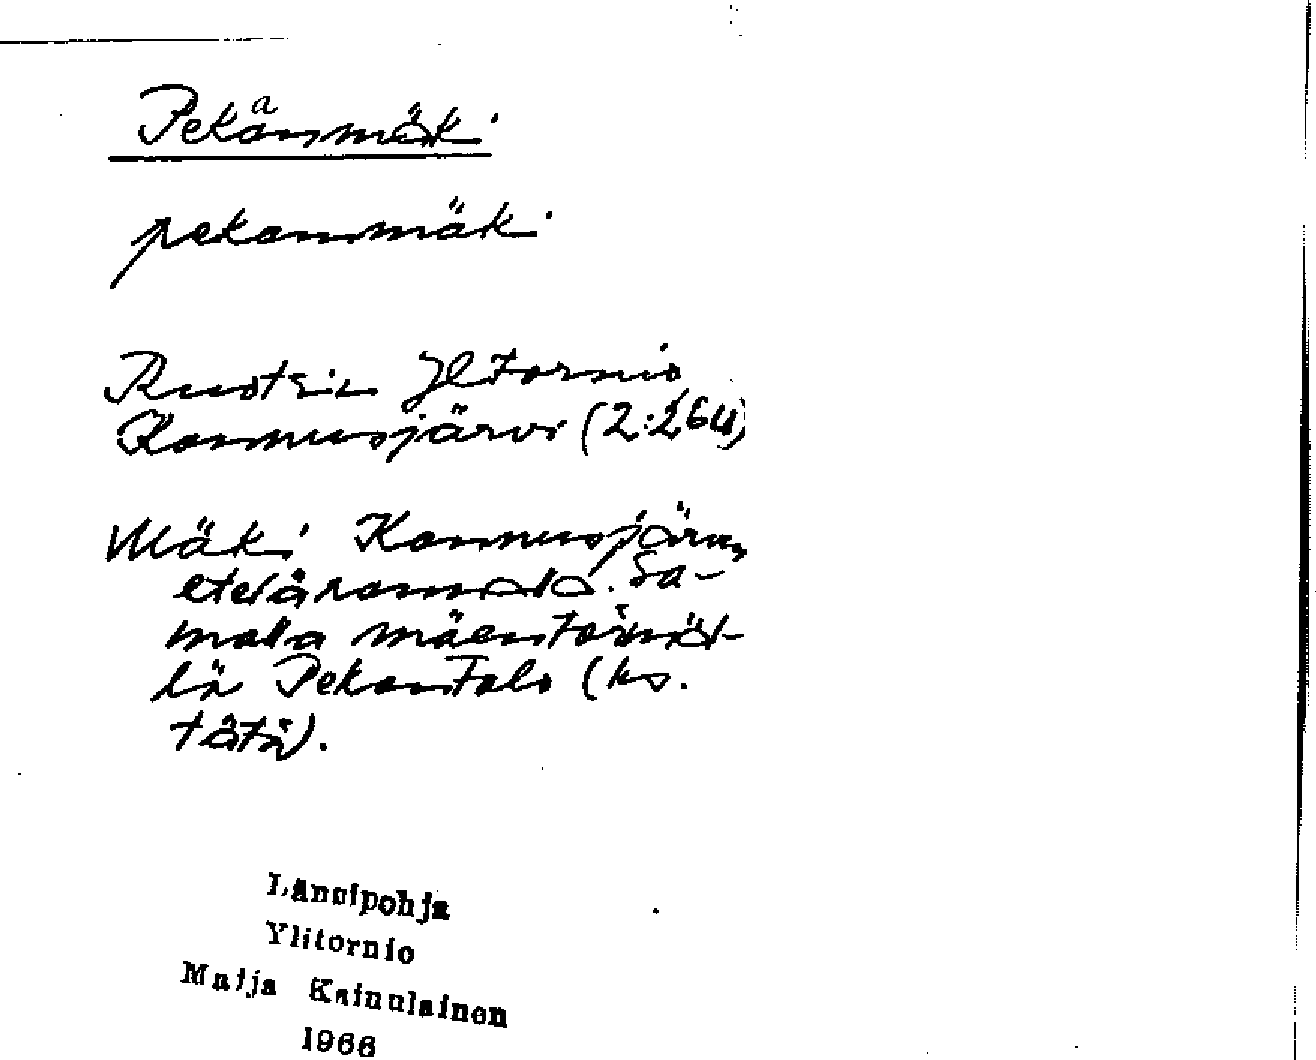 Pekanmäki
pekanmäki
Ruotsin Ylitornio
Kannusjärvi (2:264)
Mäki Kannusjärven
etelärannalla. Sa-
malla mäentörmäl-
lä Pekantalo (ks.
tätä).
Länsipohja
Ylitornio
Maija Kainulainen
1966